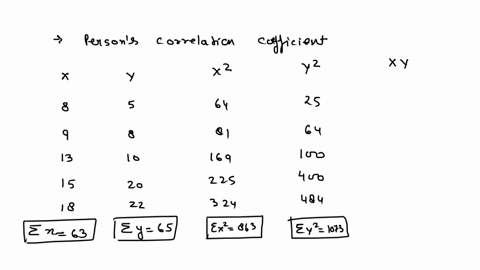 → Person's correlation coefficient
x y x² y² xy
8 5 64 25
9 8 81 64
13 10 169 100
15 20 225 400
18 22 324 484
Σx=63 Σy=65 Σx²=863 Σy²=1073